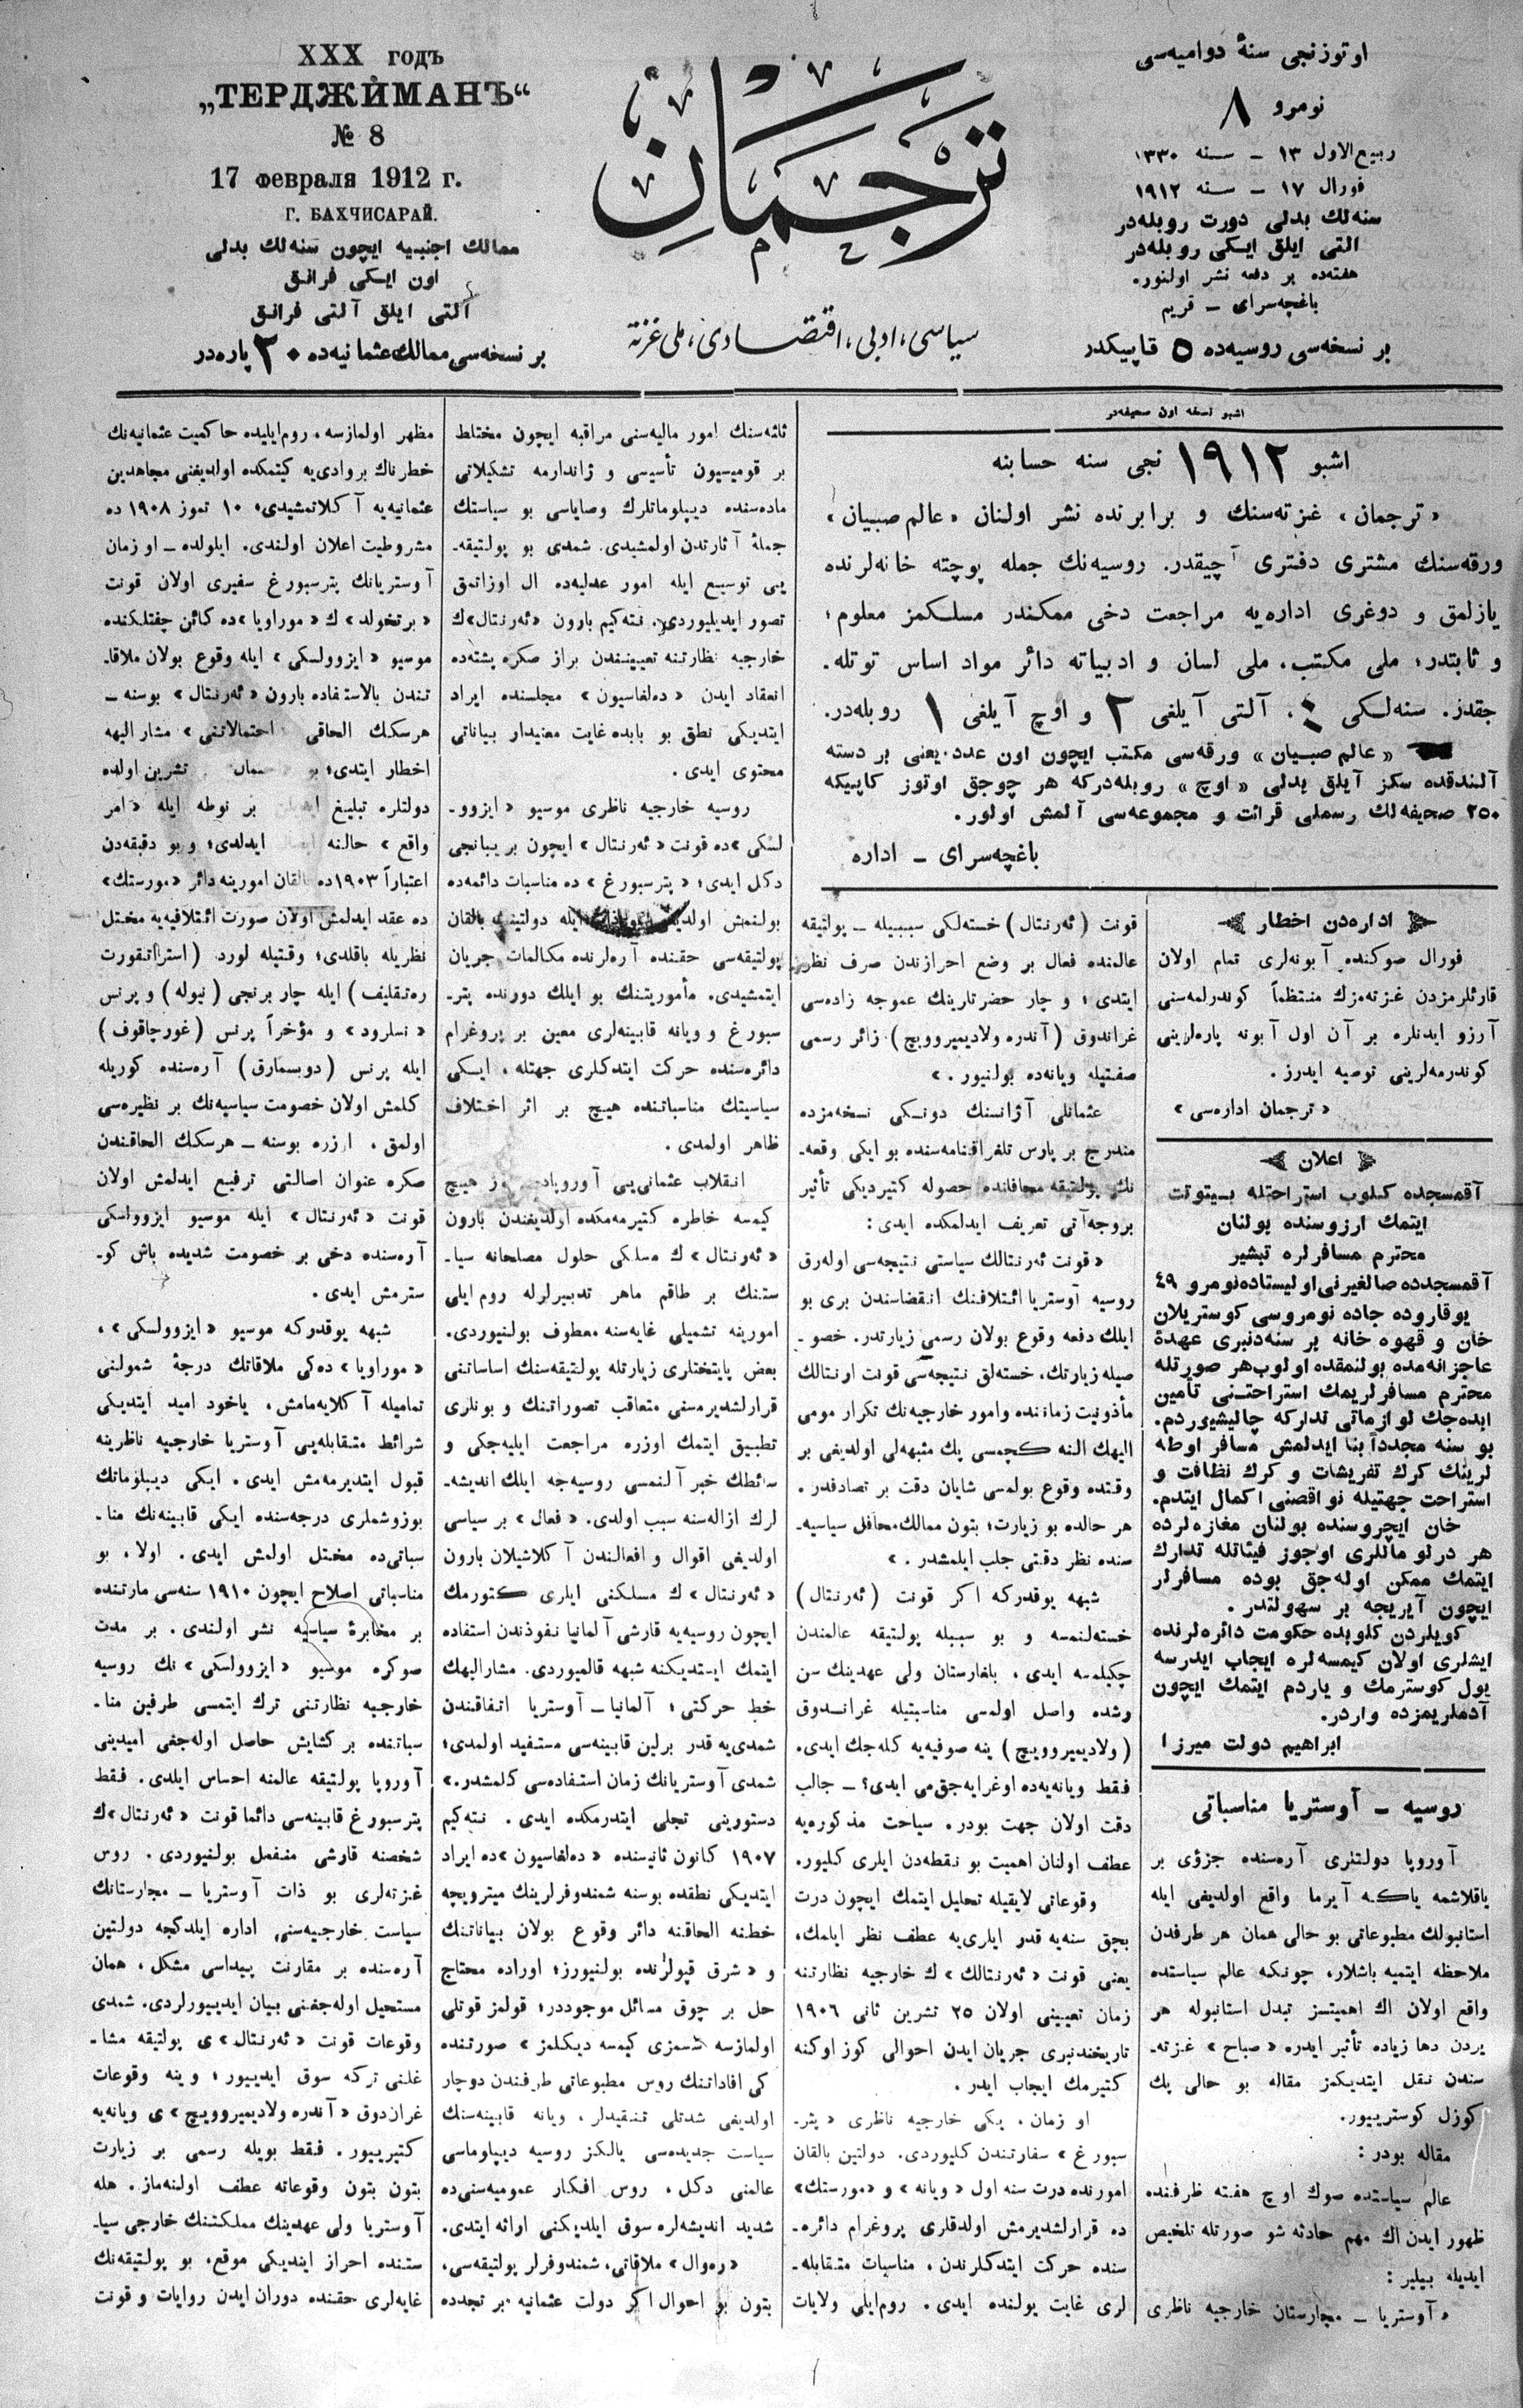 اوتوزنجی سنهٔ دوامیه‌سی
نومرو ٨
ربیع‌الاول ١٣ ـ سنه ١٣٣٠
فورال ١٧ ـ سنه ١٩١٢
سنه‌لك بدلی دورت روبله‌در
التی ایلق ایكی روبله‌در
هفته‌ده بر دفعه نشر اولنور.
باغچه‌سرای ـ قریم
بر نسخه‌سی روسیه‌ده ٥ قاپیكدر
ترجمان
سیاسی، ادبی، اقتصادی، ملی غزته
XXX годъ
„ТЕРДЖИМАНЪ“
№ 8
17 февраля 1912 г.
Г. БАХЧИСАРАЙ.
ممالك اجنبیه ایچون سنه‌لك بدلی
اون ایكی فرانق
آلتی ایلق آلتی فرانق
بر نسخه‌سی ممالك عثمانیه‌ده ٢٠ پاره‌در
اشبو نسخه اون صحیفه‌در
اشبو ١٩١٢ نجی سنه حسابنه
«ترجمان» غزته‌سنك و برابرنده نشر اولنان «عالم صبیان»
ورقه‌سنك مشتری دفتری آچیقدر. روسیه‌نك جمله پوچته خانه‌لرنده
یازلمق و دوغری اداره‌یه مراجعت دخی ممكندر مسلكمز معلوم؛
و ثابتدر؛ ملی مكتب، ملی لسان و ادبیاته دائر مواد اساس توتله‌.
جقدز. سنه‌لكی ٤، آلتی آیلغی ٢ و اوچ آیلغی ١ روبله‌در.
«عالم صبیان» ورقه‌سی مكتب ایچون اون عدد، یعنی بر دسته
آلندقده سكز آیلق بدلی «اوچ» روبله‌دركه هر چوجق اوتوز كاپیكه
٢٥٠ صحیفه‌لك رسملی قرائت و مجموعه‌سی آلمش اولور.
باغچه‌سرای ـ اداره
اداره‌دن اخطار
فورال صوكنده آبونه‌لری تمام اولان
قارئلرمزدن غزته‌مزك منتظماً كوندرلمه‌سنی
آرزو ایدنلره بر آن اول آبونه پاره‌لرینی
كوندرمه‌لرینی توصیه ایدرز.
«ترجمان اداره‌سی»
اعلان
آقمسجده كلوب استراحتله بیتوتت
ایتمك ارزوسنده بولنان
محترم مسافرلره تبشیر
آقمسجدده صالغیرنی اولیستاده نومرو ٤٩
یوقاروده جاده نومروسی كوستریلان
خان و قهوه خانه بر سنه‌دنبری عهدهٔ
عاجزانه‌مده بولنمقده اولوب هر صورتله
محترم مسافرلریمك استراحتنی تأمین
ایده‌جك لوازماتی تداركه چالیشیوردم.
بو سنه مجدداً بنا ایدلمش مسافر اوطه
لرینك كرك تفریشات و كرك نظافت و
استراحت جهتیله نواقصنی اكمال ایتدم.
خان ایچروسنده بولنان مغازه‌لرده
هر درلو ماللری اوجوز فیئاتله تدارك
ایتمك ممكن اوله‌جق بوده مسافرلر
ایچون آیریجه بر سهولتدر.
كویلردن كلوبده حكومت دائره‌لرنده
ایشلری اولان كیمسه‌لره ایجاب ایدرسه
یول كوسترمك و یاردم ایتمك ایچون
آدملریمزده واردر.
ابراهیم دولت میرزا
روسیه ـ آوستریا مناسباتی
آوروپا دولتلری آره‌سنده جزؤی بر
یاقلاشمه یاكه آیرما واقع اولدیغی ایله
استانبولك مطبوعاتی بو حالی همان هر طرفدن
ملاحظه ایتمیه باشلار، چونكه عالم سیاستده
واقع اولان اك اهمیتسز تبدل استانبوله هر
یردن دها زیاده تأثیر ایدره «صباح» غزته‌ـ
سندن نقل ایتدیكمز مقاله بو حالی پك
كوزل كوستریور.
مقاله بودر:
عالم سیاستده صوك اوچ هفته ظرفنده
ظهور ایدن اك مهم حادثه شو صورتله تلخیص
ایدیله بیلیر:
«آوستریا ـ مجارستان خارجیه ناظری
قونت (ئه‌رنتال) خسته‌لكی سببیله ـ پولتیقه
عالمنده فعال بر وضع احرازندن صرف نظر
ایتدی؛ و چار حضرتلرینك عموجه زاده‌سی
غراندوق (آندره ولادیمیروویچ) زائر رسمی
صفتیله ویانه‌ده بولنیور.»
عثمانلی آژانسنك دونكی نسخه‌مزده
مندرج بر پارس تلغرافنامه‌سنده بو ایكی وقعه‌ـ
نك پولتیقه محافلنده حصوله كتیردیكی تأثیر
بروجه‌آتی تعریف ایدلمكده ایدی:
«قونت ئه‌رنتالك سیاستی نتیجه‌سی اوله‌رق
روسیه آوستریا ائتلافنك انقضاسندن بری بو
ایلك دفعه وقوع بولان رسمی زیارتدر. خصوـ
صیله زیارتك، خسته‌لق نتیجه‌سی قونت ارنتالك
مأذونیت زماننده وامور خارجیه‌نك تكرار مومی
الیهك النه كچمسی پك مشبهه‌لی اولدیغی بر
وقتده وقوع بولمسی شایان دقت بر تصادفدر.
هر حالده بو زیارت؛ بتون ممالك محافل سیاسیه‌ـ
سنده نظر دقتی جلب ایلمشدر.»
شبهه یوقدركه اكر قونت (ئه‌رنتال)
خسته‌لنمسه و بو سببله پولتیقه عالمندن
چكیلمسه ایدی، بلغارستان ولی عهدینك سن
رشده واصل اولمسی مناسبتیله غراندوق
(ولادیمیروویچ) ینه صوفیه‌یه كله‌جك ایدی.
فقط ویانه‌یه‌ده اوغرایه‌جق‌می ایدی؟ ـ جالب
دقت اولان جهت بودر. سیاحت مذكوره‌یه
عطف اولنان اهمیت بو نقطه‌دن ایلری كلیور.
وقوعاتی لایقیله تحلیل ایتمك ایچون درت
بچق سنه‌یه قدر ایلری‌یه عطف نظر ایلمك،
یعنی قونت «ئه‌رنتالك» ك خارجیه نظارتنه
زمان تعیینی اولان ٢٥ تشرین ثانی ١٩٠٦
تاریخندنبری جریان ایدن احوالی كوز اوكنه
كتیرمك ایجاب ایدر.
او زمان، یكی خارجیه ناظری «پترـ
سبورغ» سفارتندن كلیوردی. دولتین بالقان
امورنده درت سنه اول «ویانه» و «مورستك»
ده قرارلشدیرمش اولدقلری پروغرام دائره‌ـ
سنده حركت ایتدكلرندن، مناسبات متقابله‌ـ
لری غایت یولنده ایدی. روم‌ایلی ولایات
ثلثه‌سنك امور مالیه‌سنی مراقبه ایچون مختلط
بر قومیسیون تأسیسی و ژاندارمه تشكیلاتی
ماده‌سنده دیپلوماتلرك وصایاسی بو سیاستك
جملهٔ آثارندن اولمشیدی. شمدی بو پولتیقه‌ـ
یی توسیع ایله امور عدلیه‌ده ال اوزاتمق
تصور ایدیلیوردی. نته‌كیم بارون «ئه‌رنتال»ك
خارجیه نظارتنه تعییننـدن براز صكره پشته‌ده
انعقاد ایدن «ده‌لغاسیون» مجلسنده ایراد
ایتدیكی نطق بو بابده غایت معنیدار بیاناتی
محتوی ایدی.
روسیه خارجیه ناظری موسیو «ایزووـ
لسكی»ده قونت «ئه‌رنتال» ایچون بر یبانجی
دكل ایدی؛ «پترسبورغ» ده مناسبات دائمه‌ده
بولنمش ایله دولتینك بالقان
پولتیقه‌سی حقنده آره‌لرنده مكالمات جریان
ایتمشیدی. مأموریتنك بو ایلك دورنده پترـ
سبورغ و ویانه قابینه‌لری معین بر پروغرام
دائره‌سنده حركت ایتدكلری جهتله، ایكی
سیاسیتك مناسباتنده هیچ بر اثر اختلاف
ظاهر اولمدی.
انقلاب عثمانی‌یی هیچ
كیمسه خاطره كتیرمه‌مكده اولدیغندن بارون
«ئه‌رنتال» ك مسلكی حلول مصلحانه سیاـ
ستنك بر طاقم ماهر تدبیرلرله روم ایلی
امورینه تشمیلی غایه‌سنه معطوف بولنیوردی.
بعض پایتختلری زیارتله پولتیقه‌سنك اساساتنی
قرارلشدیرمسنی متعاقب تصوراتنك و بونلری
تطبیق ایتمك اوزره مراجعت ایلیه‌جكی و
سائطك خبر آلنمسی روسیه‌جه ایلك اندیشه‌ـ
لرك ازاله‌سنه سبب اولدی. «فعال» بر سیاسی
اولدیغی اقوال و افعالندن آكلاشیلان بارون
«ئه‌رنتال» ك مسلكنی ایلری كتورمك
ایچون روسیه‌یه قارشی آلمانیا نفوذندن استفاده
ایتمك ایستدیكنه شبهه قالمیوردی. مشارالیهك
خط حركتی؛ آلمانیا ـ آوستریا اتفاقندن
شمدی‌یه قدر برلین قابینه‌سی مستفید اولمدی؛
شمدی آوستریانك زمان استفاده‌سی كلمشدر.»
دستورینی تجلی ایتدرمكده ایدی. نته‌كیم
١٩٠٧ كانون ثانیسنده «ده‌لغاسیون»ده ایراد
ایتدیكی نطقده بوسنه شمندوفرلرینك میترویچه
خطنه الحاقنه دائر وقوع بولان بیاناتنك
و «شرق قپولرنده بولنیورز؛ اوراده محتاج
حل بر چوق مسائل موجوددر؛ قولمز قوتلی
اولمازسه سسمزی كیمسه دیكلمز» صورتنده
كی افاداتنك روس مطبوعاتی طرفندن دوچار
اولدیغی شدتلی تنقیدلر، ویانه قابینه‌سنك
سیاست جدیده‌سی یالكز روسیه دیپلوماسی
عالمنی دكل، روس افكار عمومیه‌سنی‌ده
شدید اندیشه‌لره سوق ایلدیكنی ارائه ایتدی.
«ره‌وال» ملاقاتی، شمندوفرلر پولتیقه‌سی،
بتون بو احوال اكر دولت عثمانیه بر تجدده
مظهر اولمازسه، روم‌ایلیده حاكمیت عثمانیه‌نك
خطرناك بر وادی‌یه كیتمكده اولدیغنی مجاهدین
عثمانیه‌یه آكلاتمشیدی؛ ١٠ تموز ١٩٠٨ ده
مشروطیت اعلان اولندی. ایلولده ـ او زمان
آوستریانك پترسبورغ سفیری اولان قونت
«برتخولد» ك «موراویا»ده كائن چفتلكنده
موسیو «ایزوولسكی» ایله وقوع بولان ملاقاـ
تندن بالاستفاده بارون «ئه‌رنتال» بوسنه ـ
هرسكك الحاقی احتمالاتنی مشار الیهه
اخطار ایتدی؛ تشرین اولده
دولتلره تبلیغ بر نوطه ایله «امر
واقع» حالنه ایدلدی؛ و بو دقیقه‌دن
اعتباراً ١٩٠٣ده بالقان امورینه دائر «مورستك»
ده عقد ایدلمش اولان صورت ائتلافیه‌یه مختل
نظریله باقلدی؛ وقتیله لورد (استراتفورت
ره‌تقلیف) ایله چار برنجی (نیوله) و پرنس
«نسلرود» و مؤخراً پرنس (غورچاقوف)
ایله پرنس (دوبسمارق) آره‌سنده كوریله
كلمش اولان خصومت سیاسیه‌نك بر نظیره‌سی
اولمق، ازره بوسنه ـ هرسكك الحاقندن
صكره عنوان اصالتی ترفیع ایدلمش اولان
قونت «ئه‌رنتال» ایله موسیو ایزوولسكی
آره‌سنده دخی بر خصومت شدیده باش كوـ
سترمش ایدی.
شبهه یوقدركه موسیو «ایزوولسكی»،
«موراویا»ده‌كی ملاقاتك درجهٔ شمولنی
تمامیله آكلایه‌مامش، یاخود امید ایتدیكی
شرائط متقابله‌یی آوستریا خارجیه ناظرینه
قبول ایتدیرمه‌مش ایدی. ایكی دیپلوماتك
بوزوشملری درجه‌سنده ایكی قابینه‌نك مناـ
سباتی‌ده مختل اولمش ایدی. اولا، بو
مناسباتی اصلاح ایچون ١٩١٠ سنه‌سی مارتنده
بر مخابرهٔ سیاسیه نشر اولندی. بر مدت
صوكره موسیو «ایزوولسكی»نك روسیه
خارجیه نظارتنی ترك ایتمسی طرفین مناـ
سباتنده بر كشایش حاصل اوله‌جغی امیدینی
آوروپا پولتیقه عالمنه احساس ایلدی. فقط
پترسبورغ قابینه‌سی دائما قونت «ئه‌رنتال»ك
شخصنه قارشی منفعل بولنیوردی. روس
غزته‌لری بو ذات آوستریا ـ مجارستانك
سیاست خارجیه‌سنی اداره ایلدكجه دولتین
آره‌سنده بر مقارنت پیداسی مشكل، همان
مستحیل اوله‌جغنی بیان ایدییورلردی. شمدی
وقوعات قونت «ئه‌رنتال»ی پولتیقه مشاـ
غلنی تركه سوق ایدییور؛ و ینه وقوعات
غراندوق «آندره ولادیمیروویچ»ی ویانه‌یه
كتیرییور. فقط بویله رسمی بر زیارت
بتون بتون وقوعاته عطف اولنه‌ماز. هله
آوستریا ولی عهدینك مملكتنك خارجی سیاـ
ستنده احراز ایتدیكی موقع، بو پولتیقه‌نك
غایه‌لری حقنده دوران ایدن روایات و قونت